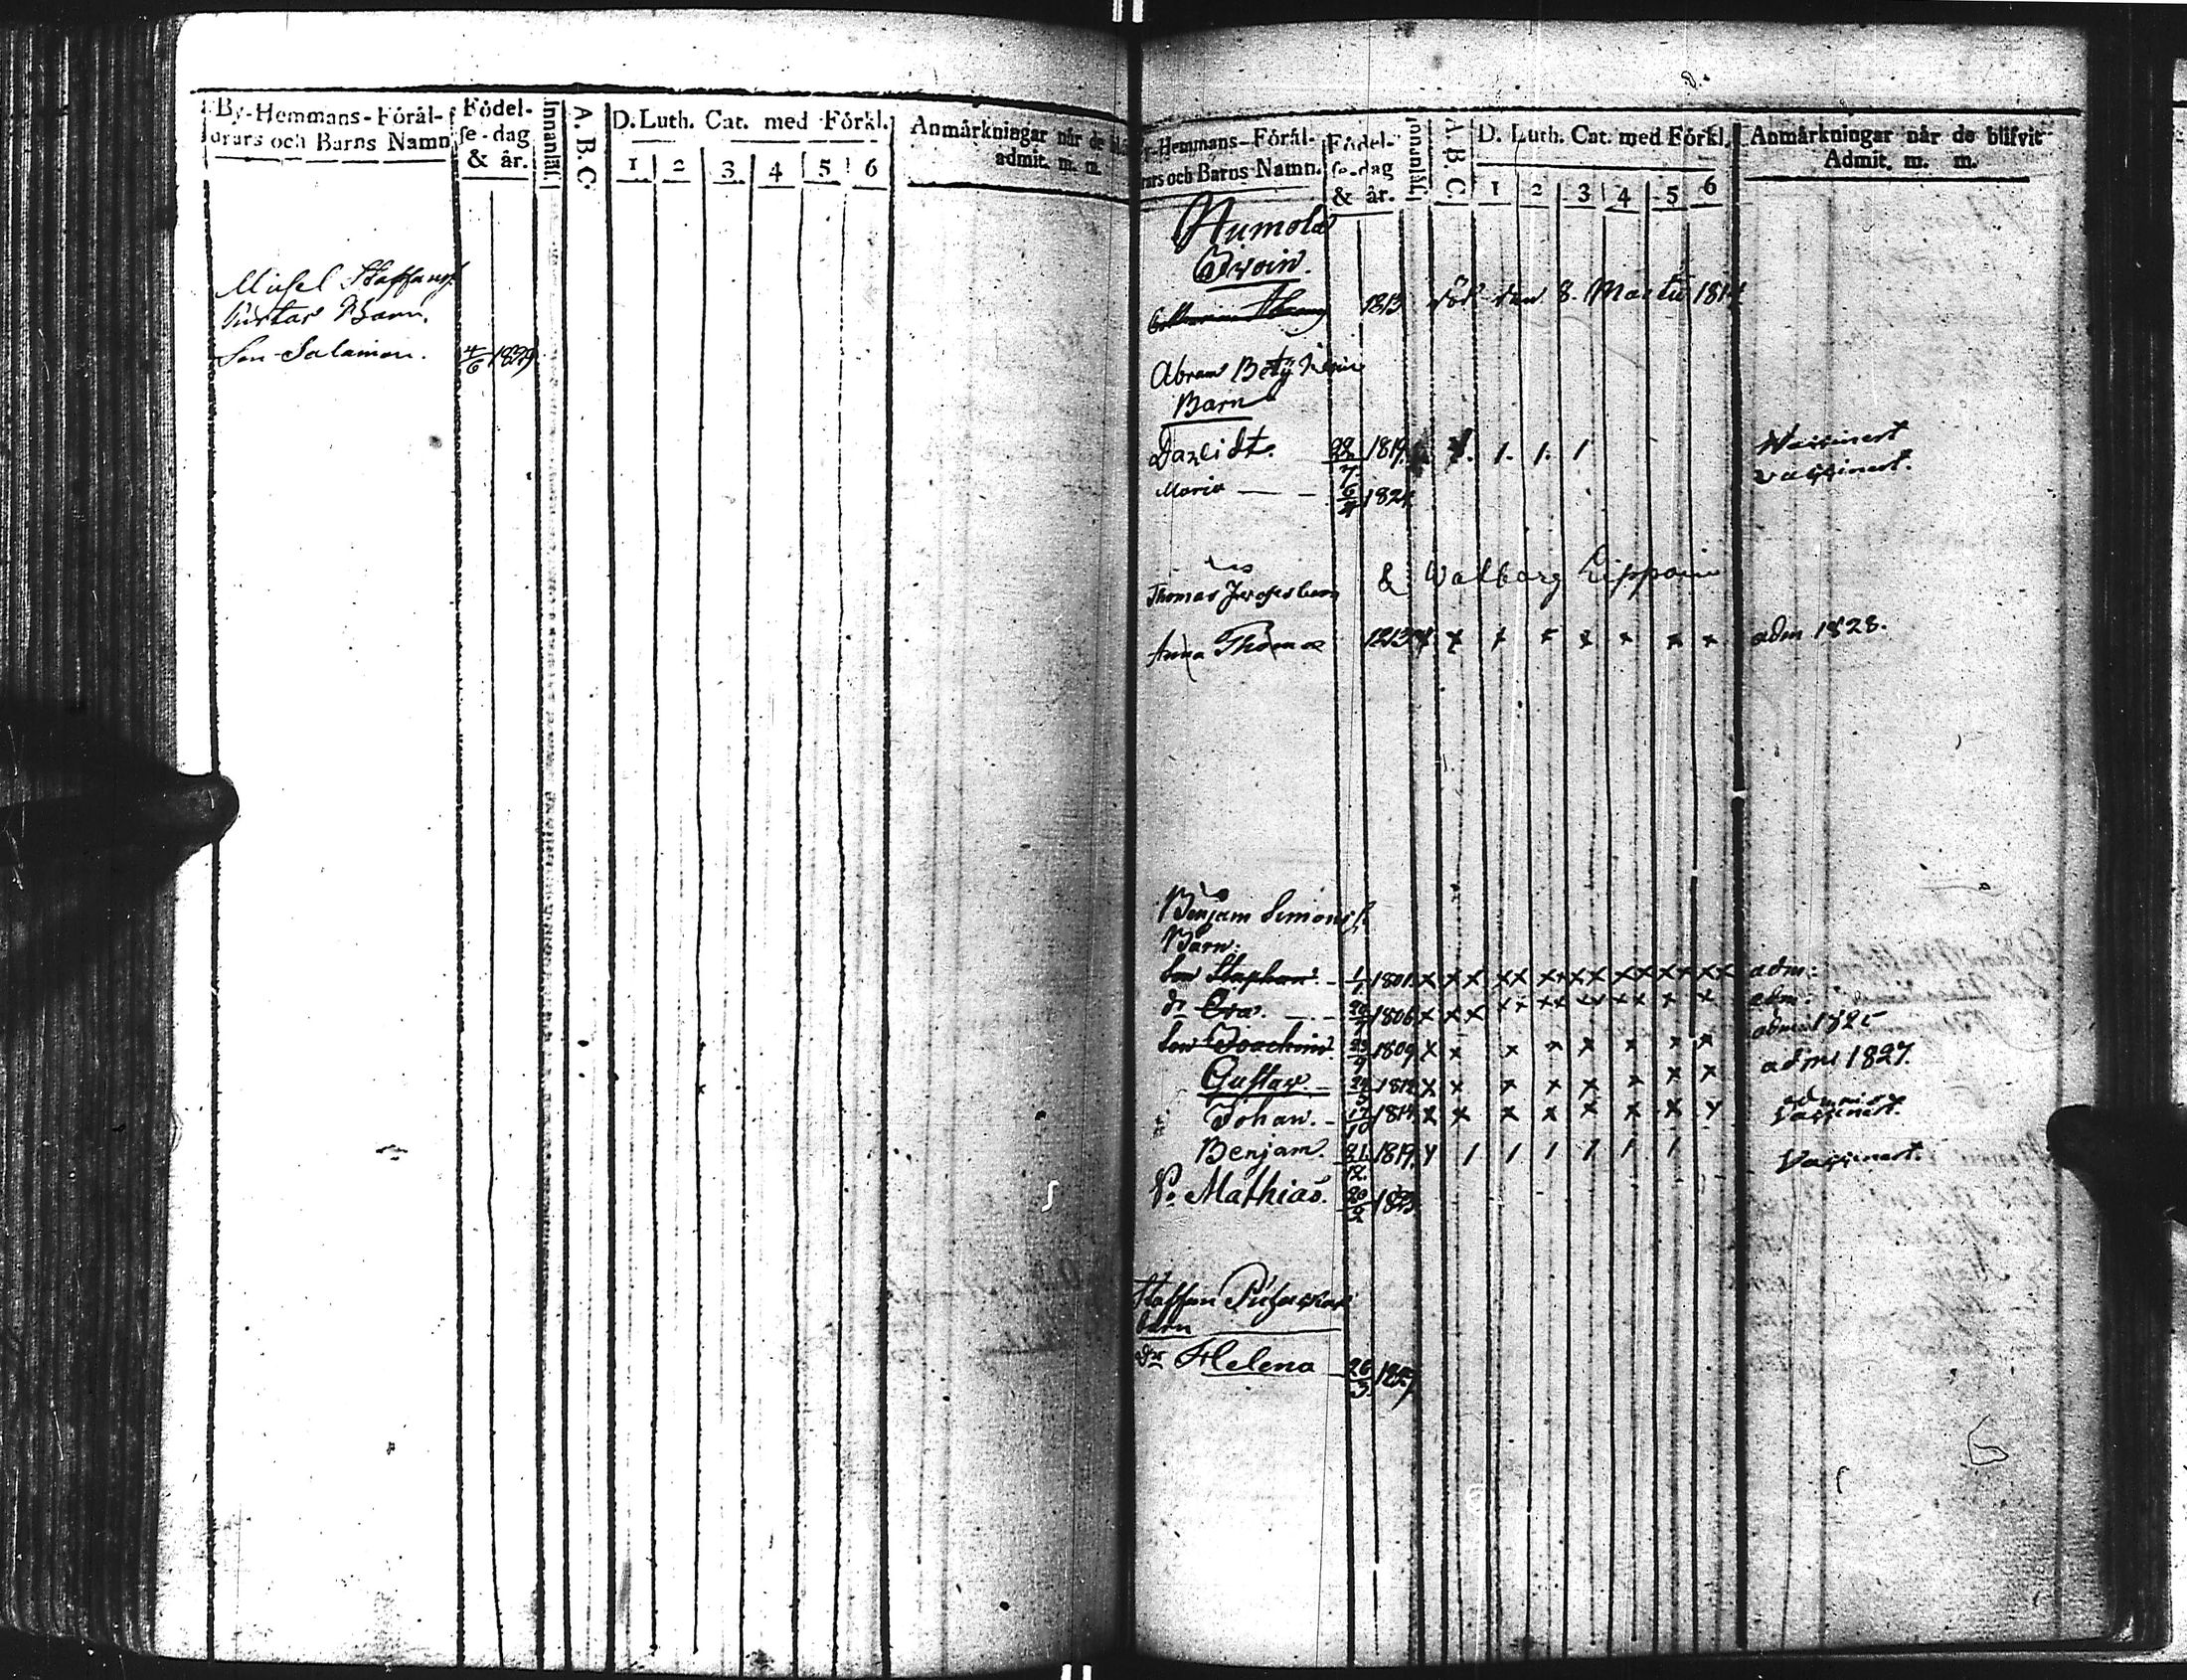 By-Hemmans-Föräl-
drars och Barns Namn
Födel-
se-dag
& år.
Innanläs.
A. B. C.
D. Luth. Cat. med Förkl.
1 2 3 4 5 6
Anmärkningar når de
admit. m. m.
Michel Staffans
Gustav Barn.
Son Salamon. 4/6 1829
Hemmans-Föräl-
rars och Barns Namn.
Födel-
se-dag
& år.
Innanläs.
A. B. C.
D. Luth. Cat. med Förkl.
1 2 3 4 5 6
Anmärkningar når de blifvit
Admit. m. m.
Humola
1813 död den 8. Martii 1814
Abram
Barn
David 22/7 1819. 1. 1. 1 Waccinert
Maria — — 6/4 1824 vaccinert.
Thomas & Walborg
Anna Thomae 1813 x x x x x x x x adm 1828.
Benjam Simons
Barn:
Son Staphan - 1/1 1801 x x x x x x x x x x x x x x adm:
dr Eva. 1806 x x x x x x x x x x x x adm:
Son Joachim 1809 x x x x x x x x adm: 182
Gustav 1812 x x x x x x x x adm 1827.
Johan. - 17/10 1814 x x x x x x x x vaccinert.
Benjam. 21/12 1819 1 1 1 1 1 1 Vaccinert.
Mathias. 20/2 1823
Staffan
barn
dr Helena 26/3 1829